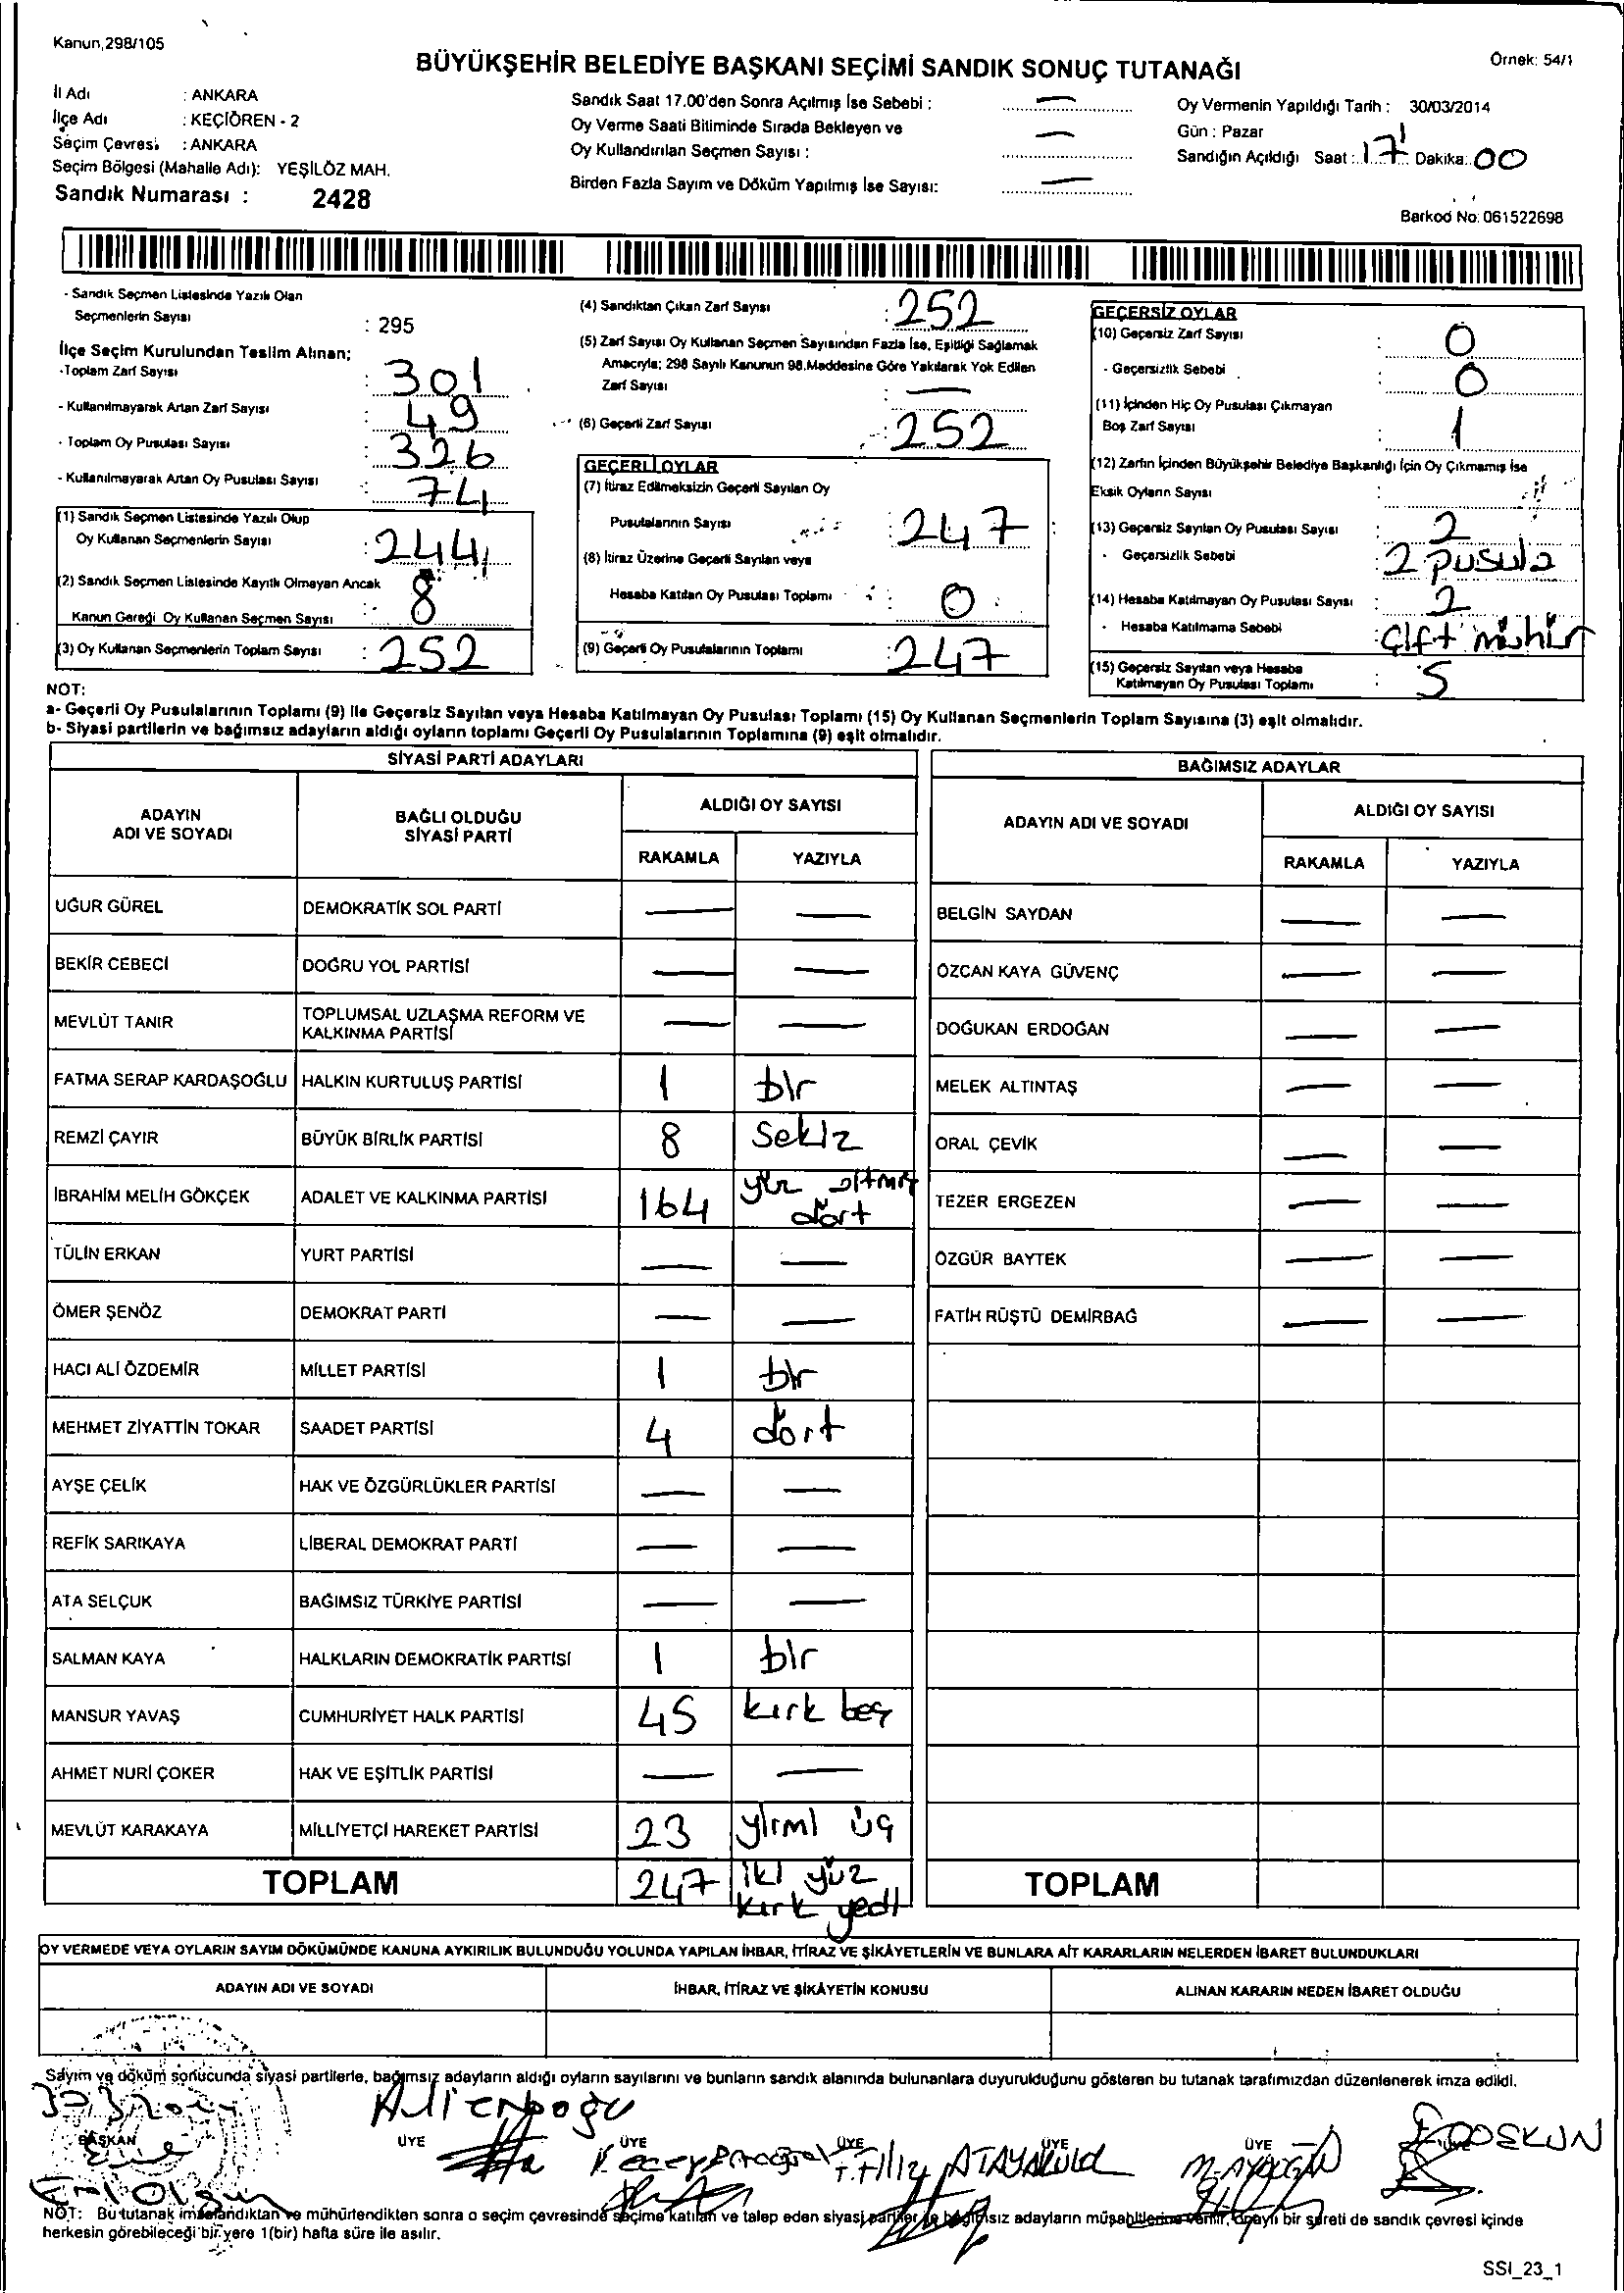 Kanun,298/105
Örnek: 54/1
BÜYÜKŞEHİR BELEDİYE BAŞKANI SEÇİMİ SANDIK SONUÇ TUTANAĞI
İl Adı : ANKARA
İlçe Adı : KEÇİÖREN - 2
Seçim Çevresi : ANKARA
Seçim Bölgesi (Mahalle Adı): YEŞİLÖZ MAH.
Sandık Numarası : 2428
Sandık Saat 17.00'den Sonra Açılmış İse Sebebi : —
Oy Verme Saati Bitiminde Sırada Bekleyen ve
Oy Kullandırılan Seçmen Sayısı : —
Birden Fazla Sayım ve Döküm Yapılmış İse Sayısı: —
Oy Vermenin Yapıldığı Tarih : 30/03/2014
Gün : Pazar
Sandığın Açıldığı Saat : 17 Dakika: 00
Barkod No: 061522698
- Sandık Seçmen Listesinde Yazılı Olan
Seçmenlerin Sayısı : 295
İlçe Seçim Kurulundan Teslim Alınan;
-Toplam Zarf Sayısı : 301
- Kullanılmayarak Artan Zarf Sayısı : 49
- Toplam Oy Pusulası Sayısı : 326
- Kullanılmayarak Artan Oy Pusulası Sayısı : 74
(1) Sandık Seçmen Listesinde Yazılı Olup
Oy Kullanan Seçmenlerin Sayısı : 244
(2) Sandık Seçmen Listesinde Kayıtlı Olmayan Ancak
Kanun Gereği Oy Kullanan Seçmen Sayısı : 8
(3) Oy Kullanan Seçmenlerin Toplam Sayısı : 252
(4) Sandıktan Çıkan Zarf Sayısı : 252
(5) Zarf Sayısı Oy Kullanan Seçmen Sayısından Fazla İse, Eşitliği Sağlamak
Amacıyla; 298 Sayılı Kanunun 98.Maddesine Göre Yakılarak Yok Edilen
Zarf Sayısı : —
(6) Geçerli Zarf Sayısı : 252
GEÇERLİ OYLAR
(7) İtiraz Edilmeksizin Geçerli Sayılan Oy
Pusulalarının Sayısı : 247
(8) İtiraz Üzerine Geçerli Sayılan veya
Hesaba Katılan Oy Pusulası Toplamı : 0
(9) Geçerli Oy Pusulalarının Toplamı : 247
GEÇERSİZ OYLAR
(10) Geçersiz Zarf Sayısı : 0
- Geçersizlik Sebebi : 0
(11) İçinden Hiç Oy Pusulası Çıkmayan
Boş Zarf Sayısı : 1
(12) Zarfın İçinden Büyükşehir Belediye Başkanlığı İçin Oy Çıkmamış İse
Eksik Oyların Sayısı :
(13) Geçersiz Sayılan Oy Pusulası Sayısı : 2
- Geçersizlik Sebebi : 2 pusula
(14) Hesaba Katılmayan Oy Pusulası Sayısı : 2
- Hesaba Katılmama Sebebi : çift mühür
(15) Geçersiz Sayılan veya Hesaba
Katılmayan Oy Pusulası Toplamı : 5
NOT:
a- Geçerli Oy Pusulalarının Toplamı (9) ile Geçersiz Sayılan veya Hesaba Katılmayan Oy Pusulası Toplamı (15) Oy Kullanan Seçmenlerin Toplam Sayısına (3) eşit olmalıdır.
b- Siyasi partilerin ve bağımsız adayların aldığı oyların toplamı Geçerli Oy Pusulalarının Toplamına (9) eşit olmalıdır.
SİYASİ PARTİ ADAYLARI
ADAYIN ADI VE SOYADI
BAĞLI OLDUĞU SİYASİ PARTİ
ALDIĞI OY SAYISI
RAKAMLA YAZIYLA
UĞUR GÜREL DEMOKRATİK SOL PARTİ — —
BEKİR CEBECİ DOĞRU YOL PARTİSİ — —
MEVLÜT TANIR TOPLUMSAL UZLAŞMA REFORM VE KALKINMA PARTİSİ — —
FATMA SERAP KARDAŞOĞLU HALKIN KURTULUŞ PARTİSİ 1 bir
REMZİ ÇAYIR BÜYÜK BİRLİK PARTİSİ 8 Sekiz
İBRAHİM MELİH GÖKÇEK ADALET VE KALKINMA PARTİSİ 164 yüz altmış dört
TÜLİN ERKAN YURT PARTİSİ — —
ÖMER ŞENÖZ DEMOKRAT PARTİ — —
HACI ALİ ÖZDEMİR MİLLET PARTİSİ 1 bir
MEHMET ZİYATTİN TOKAR SAADET PARTİSİ 4 dört
AYŞE ÇELİK HAK VE ÖZGÜRLÜKLER PARTİSİ — —
REFİK SARIKAYA LİBERAL DEMOKRAT PARTİ — —
ATA SELÇUK BAĞIMSIZ TÜRKİYE PARTİSİ — —
SALMAN KAYA HALKLARIN DEMOKRATİK PARTİSİ 1 bir
MANSUR YAVAŞ CUMHURİYET HALK PARTİSİ 45 kırk beş
AHMET NURİ ÇOKER HAK VE EŞİTLİK PARTİSİ — —
MEVLÜT KARAKAYA MİLLİYETÇİ HAREKET PARTİSİ 23 yirmi üç
TOPLAM 247 iki yüz kırk yedi
BAĞIMSIZ ADAYLAR
ADAYIN ADI VE SOYADI
ALDIĞI OY SAYISI
RAKAMLA YAZIYLA
BELGİN SAYDAN — —
ÖZCAN KAYA GÜVENÇ — —
DOĞUKAN ERDOĞAN — —
MELEK ALTINTAŞ — —
ORAL ÇEVİK — —
TEZER ERGEZEN — —
ÖZGÜR BAYTEK — —
FATİH RÜŞTÜ DEMİRBAĞ — —
TOPLAM
OY VERMEDE VEYA OYLARIN SAYIM DÖKÜMÜNDE KANUNA AYKIRILIK BULUNDUĞU YOLUNDA YAPILAN İHBAR, İTİRAZ VE ŞİKÂYETLERİN VE BUNLARA AİT KARARLARIN NELERDEN İBARET BULUNDUKLARI
ADAYIN ADI VE SOYADI İHBAR, İTİRAZ VE ŞİKÂYETİN KONUSU ALINAN KARARIN NEDEN İBARET OLDUĞU
Sayım ve döküm sonucunda siyasi partilerle, bağımsız adayların aldığı oyların sayılarını ve bunların sandık alanında bulunanlara duyurulduğunu gösteren bu tutanak tarafımızdan düzenlenerek imza edildi.
BAŞKAN ÜYE ÜYE ÜYE ÜYE ÜYE
NOT: Bu tutanak imzalandıktan ve mühürlendikten sonra o seçim çevresinde seçime katılan ve talep eden siyasi partiler ile bağımsız adayların müşahitlerine verilir, onaylı bir sureti de sandık çevresi içinde
herkesin görebileceği bir yere 1(bir) hafta süre ile asılır.
SSI_23_1